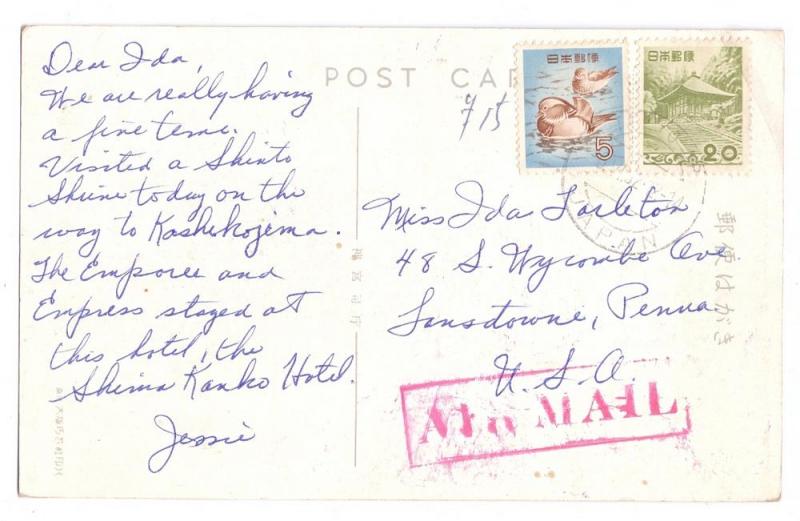 POST CAR
Dear Ida,
We are really having
a fine time.
Visited a Shinto
Shrine today on the
way to Kashekojema.
The Emporee and
Empress stayed at
this hotel, the
Shima Kanko Hotel.
Jessie
715
日本郵便
5
日本郵便
20
JAPAN
Miss Ida Tarleton
48 S. Wycombe Ave.
Lansdowne, Penna.
U.S.A.
AIR MAIL
郵便はがき